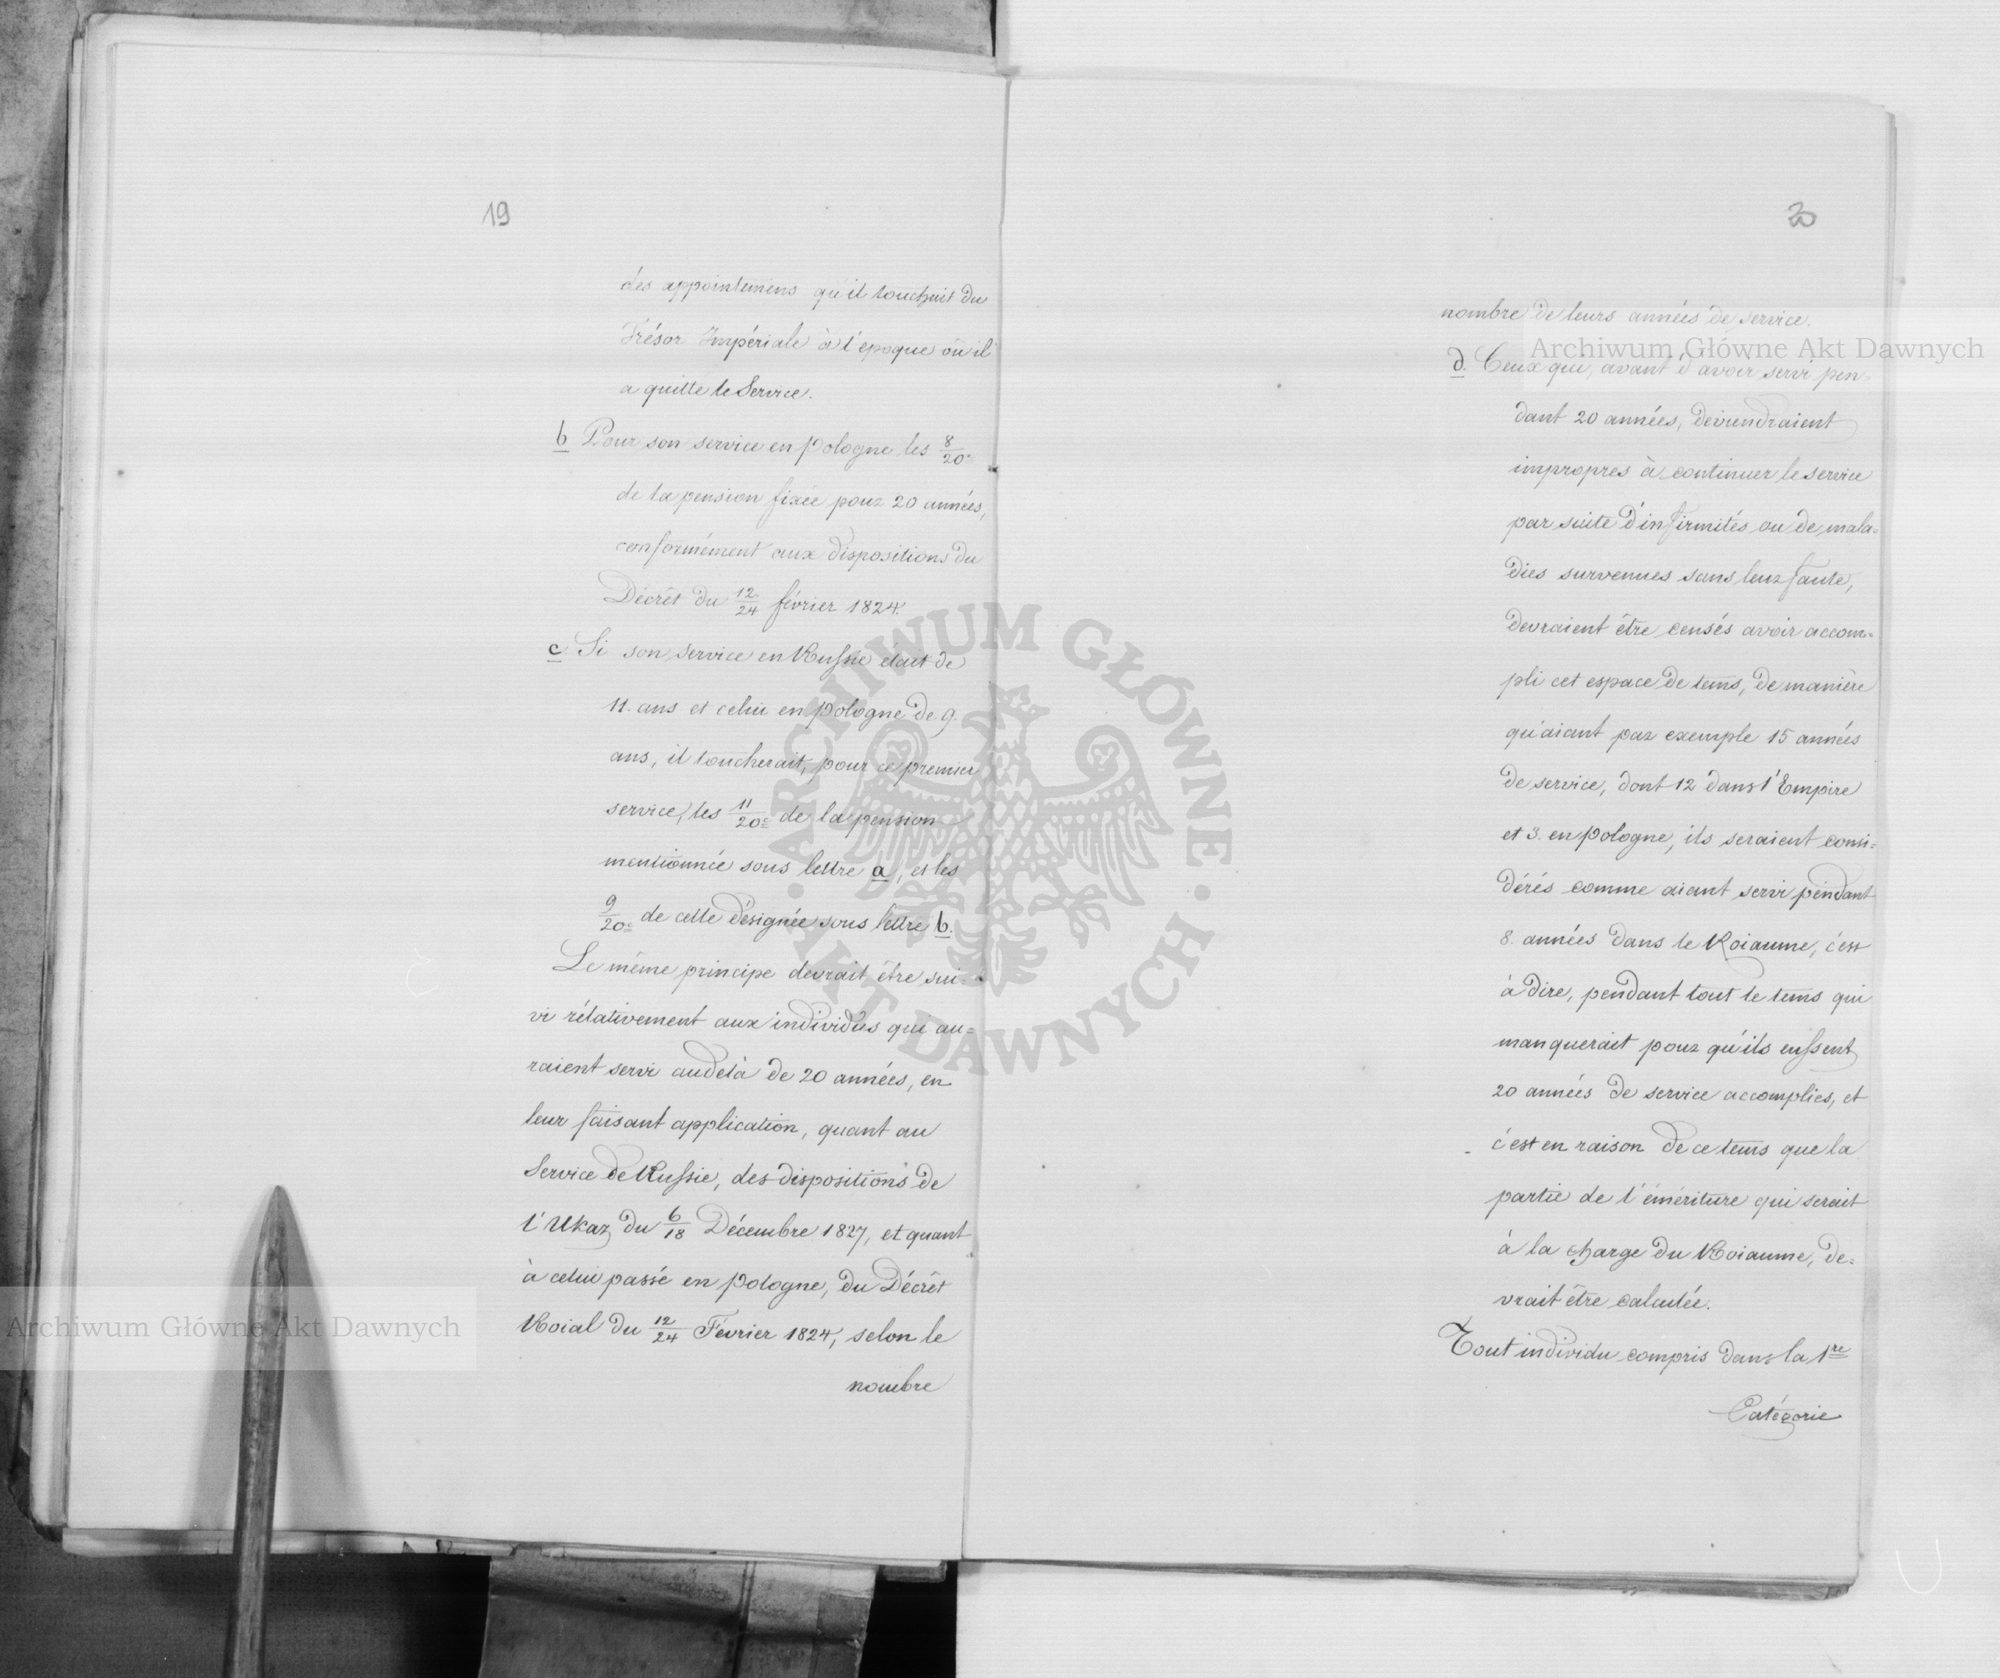 19
des appointemens qu'il touchait du
Trésor Impériale à l'époque où il
a quitté le Service.
b Pour son service en Pologne les 8/20es
de la pension fixée pour 20 années,
conformément aux dispositions du
Décrêt du 12/24 février 1824.
c Si son service en Russie était de
11. ans et celui en Pologne de 9.
ans, il toucherait, pour ce premier
service, les 11/20es de la pension
mentionnée sous lettre a, et les
9/20es de celle désignée sous lettre b.
Le même principe devrait être sui-
vi rélativement aux individus qui au=
raient servi audelà de 20 années, en
leur faisant application, quant au
Service de Russie, des dispositions de
l'Ukaz du 6/18 Décembre 1827, et quant
à celui passé en Pologne, du Décrêt
Roial du 12/24 Février 1824, selon le
nombre
20
nombre de leurs années de service.
d. Ceux qui, avant d'avoir servi pen-
dant 20 années, deviendraient
impropres à continuer le service
par suite d'infirmités ou de mala=
dies survenues sans leur faute,
devraient être censés avoir accom=
pli cet espace de tems, de manière
qu'aiant par exemple 15 années
de service, dont 12 dans l'Empire
et 3. en Pologne, ils seraient consi=
dérés comme aiant servi pendant
8. années dans le Roiaume, c'est
à dire, pendant tout le tems qui
manquerait pour qu'ils eussent
20 années de service accomplies, et
c'est en raison de ce tems que la
partie de l'éméritüre qui serait
à la charge du Roiaume, de=
vrait être calculée.
Tout individu compris dans la 1re
Catégorie
Archiwum Główne Akt Dawnych
Archiwum Główne Akt Dawnych
ARCHIWUM GŁÓWNE · AKT DAWNYCH ·